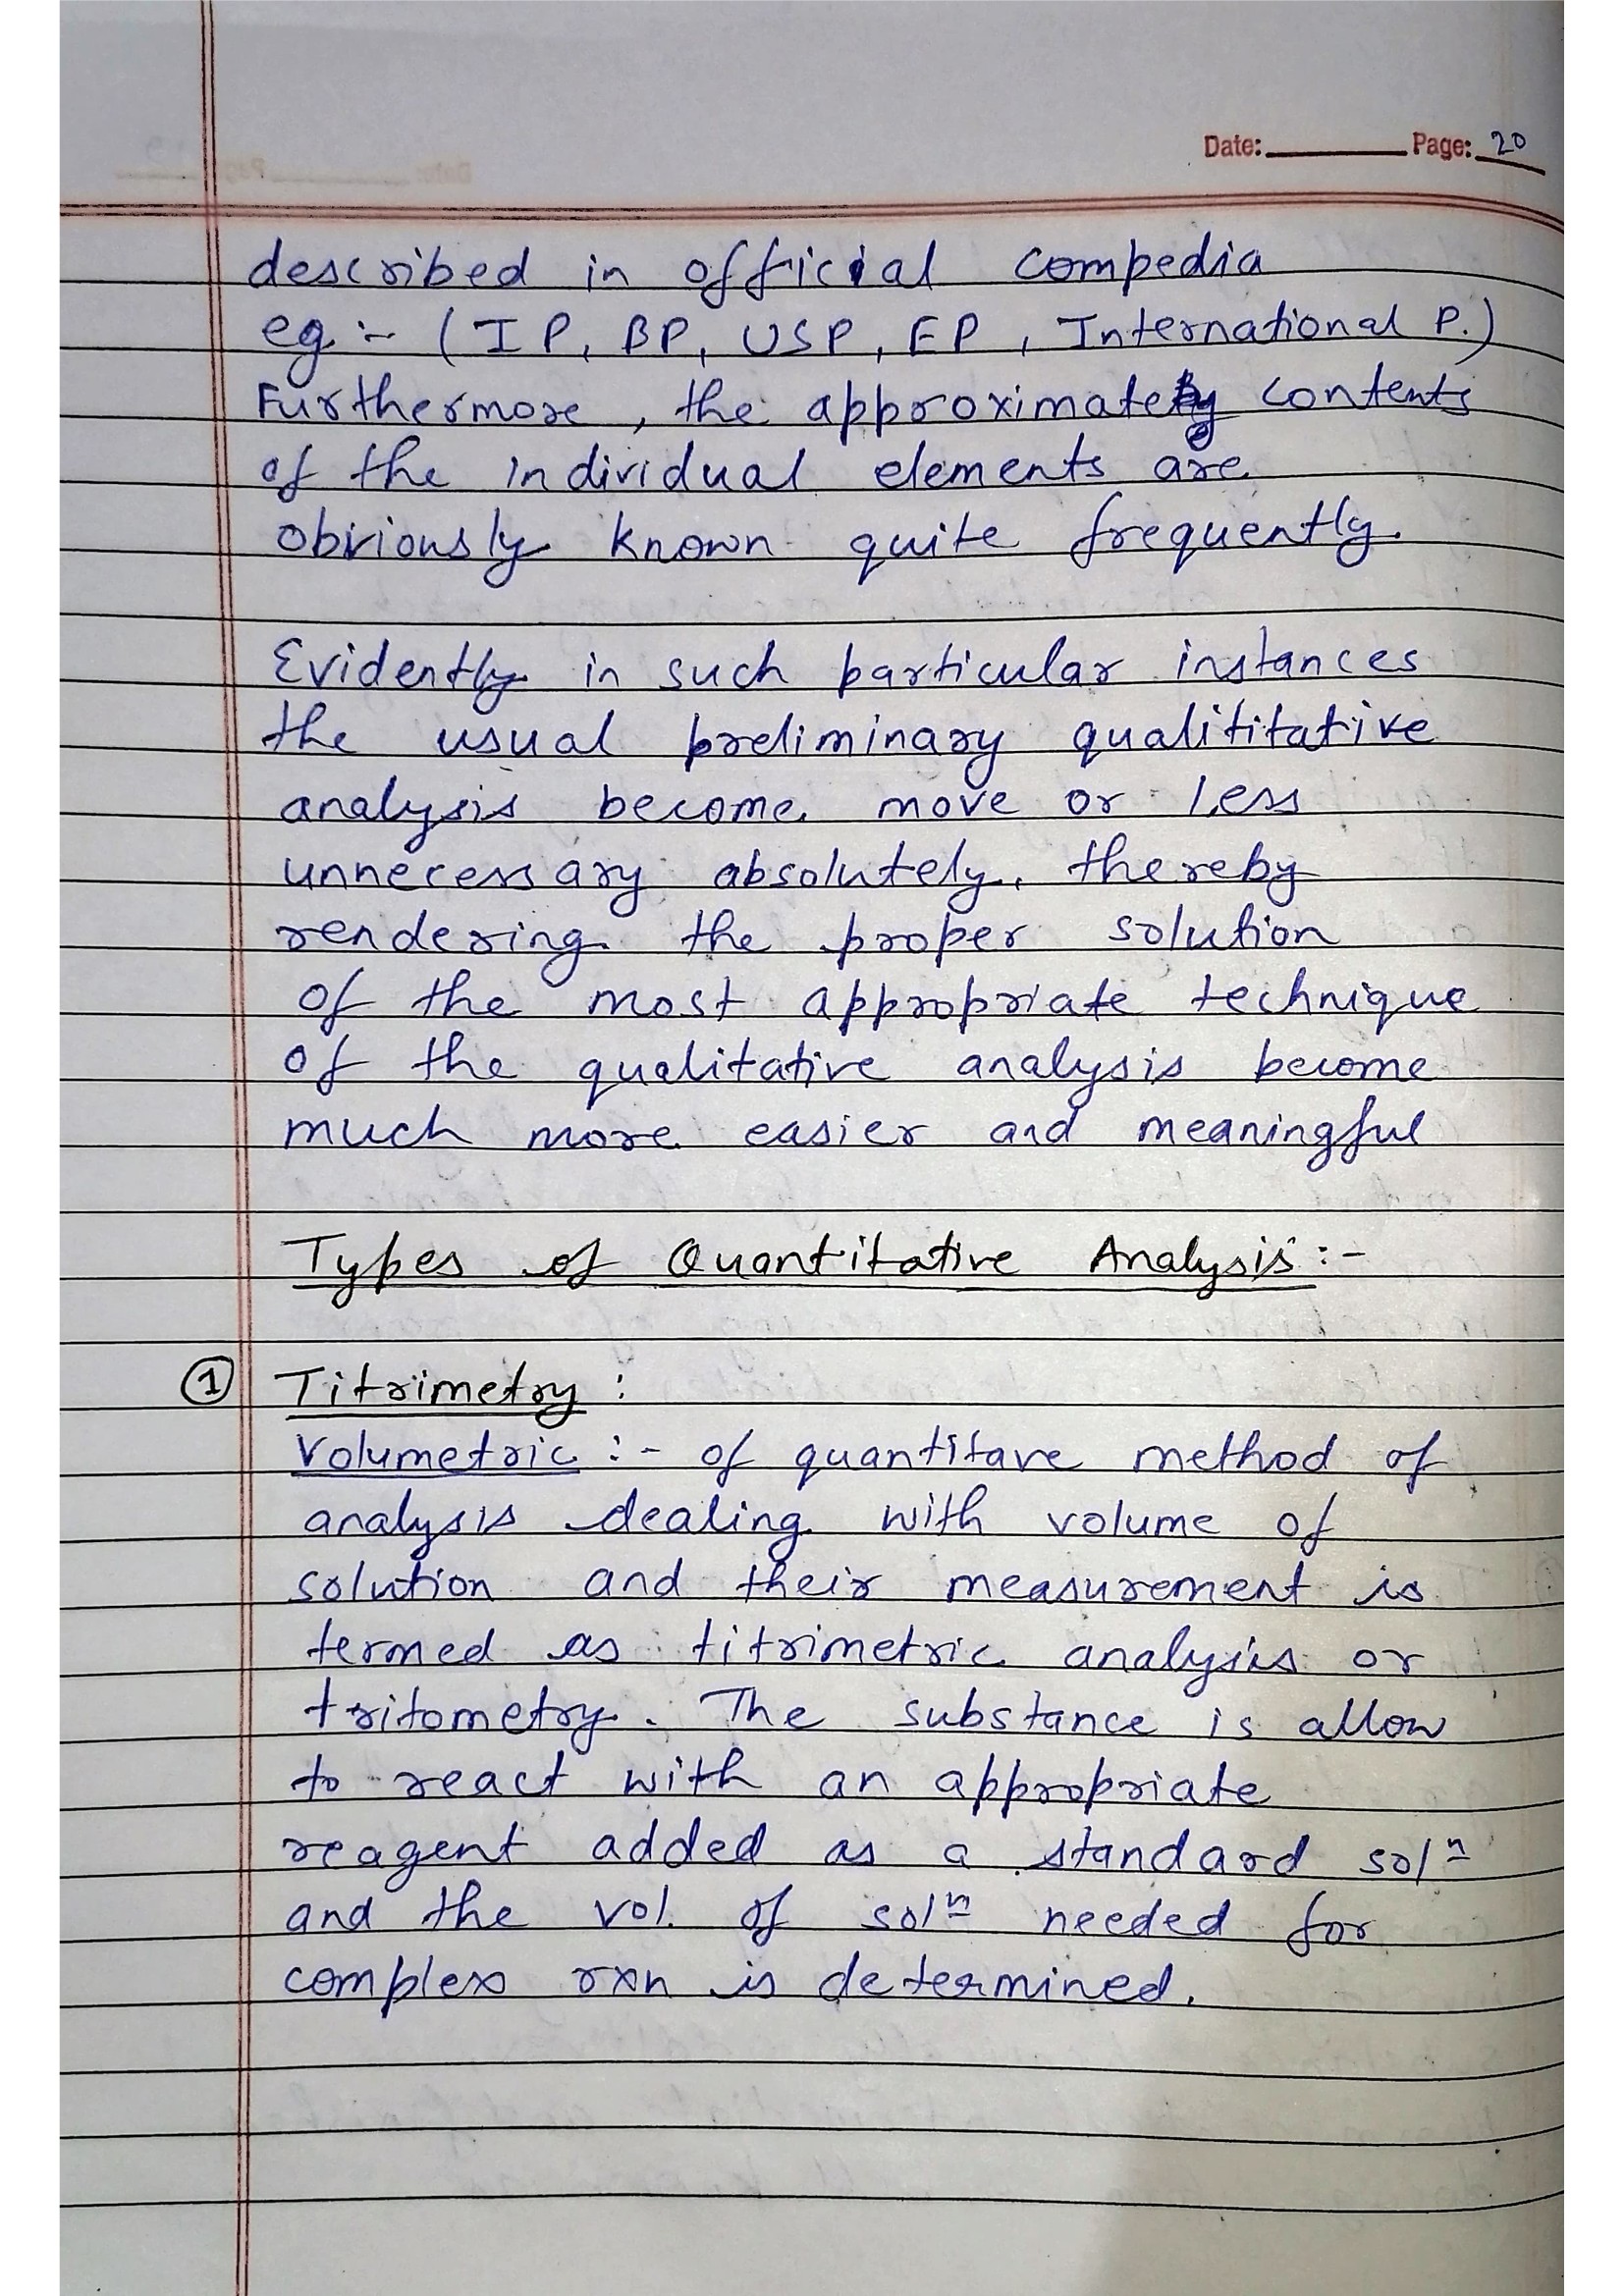 Date: Page: 20
described in official compedia
eg :- ( IP, BP, USP, EP , International P.)
Furthermore , the approximately contents
of the individual elements are
obviously known quite frequently.
Evidently in such particular instances
the usual preliminary qualititative
analysis become move or less
unnecessary absolutely, thereby
rendering the proper solution
of the most appropriate technique
of the qualitative analysis become
much more easier and meaningful
Types of Quantitative Analysis :-
① Titrimetry :
Volumetric :- of quantitave method of
analysis dealing with volume of
solution and their measurement is
termed as titrimetric analysis or
tritometry. The substance is allow
to react with an appropriate
reagent added as a standard solⁿ
and the vol. of solⁿ needed for
complex rxn is determined.